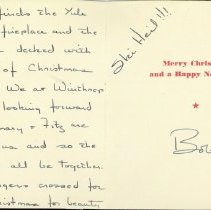 finds the Yule
fireplace and the
decked with
of Christmas
We at Winthrop
looking forward
mary & Fitz are
us and so the
all be together.
fingers crossed for
Christmas for beauty
Skin Heal !!!!
Merry Chris
and a Happy Ne
Bob